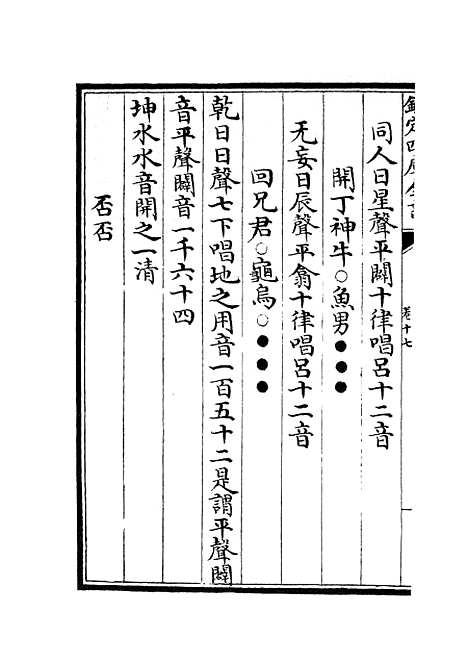 欽定四庫全書
卷十七
同人日星聲平闢十律唱呂十二音
開丁神牛○魚男●●●
无妄日辰聲平翕十律唱呂十二音
回兄君○龜烏○●●●
乾日日聲七下唱地之用音一百五十二是謂平聲闢
音平聲闢音一千六十四
坤水水音開之一清
否否